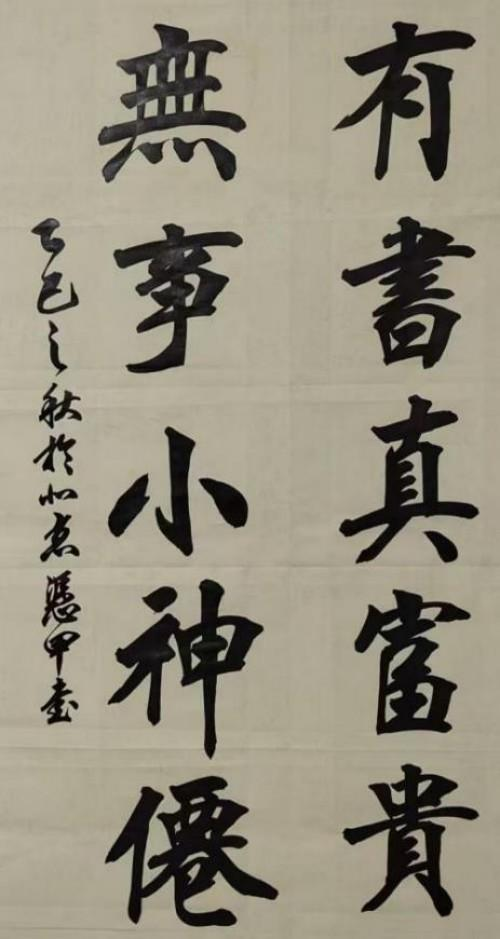 有書真富貴
無事小神僊
乙巳之秋於北京馮甲書